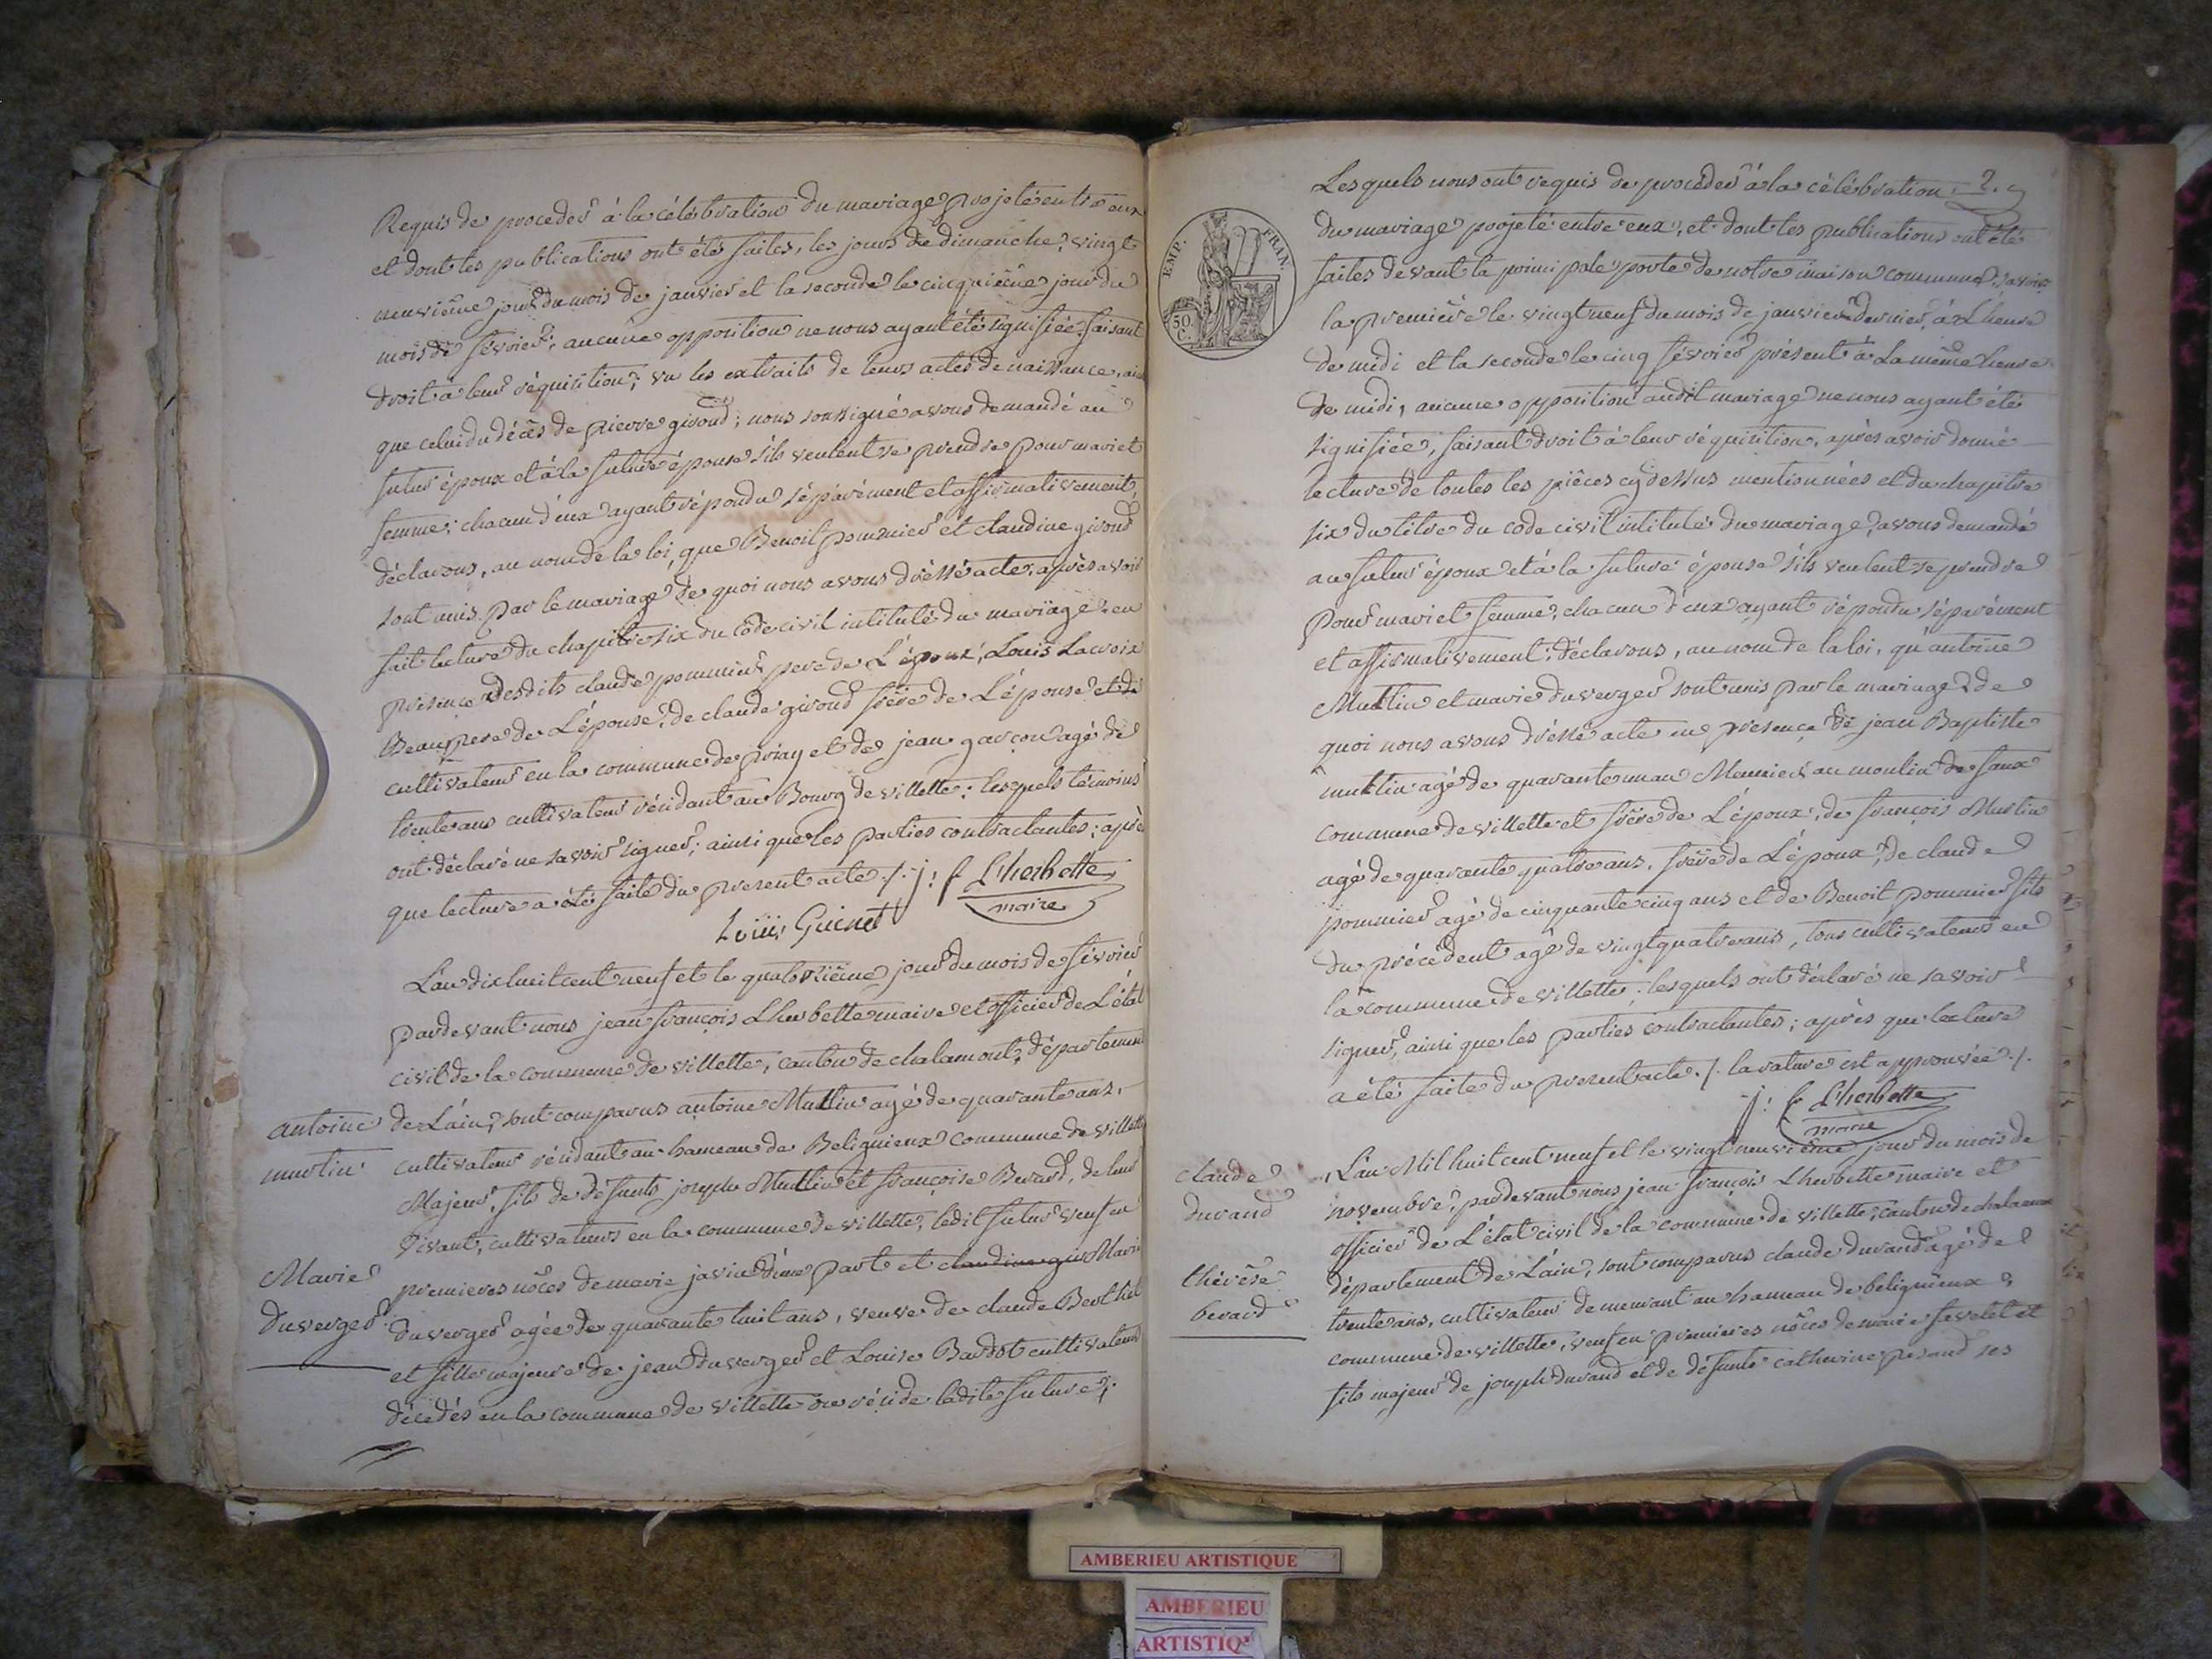 Requis de proceder à la célébration du mariage projeté entre eux
et dont les publications ont été faites, les jours de dimanche vingt
neuvième jour du mois de janvier et la seconde le cinquième jour du
mois de févrıer; aucune opposition ne nous ayant été signifiée, faisant
droit à leur réquisition; vu les extraits de leurs actes de naissance,
que celui du décès de pierre giroud; nous soussigné avons demandé au
futur époux et à la future épouse s'ils veulent se prendre pour mari et
femme; chacun d'eux ayant répondu séparément et affirmativement,
déclarons, au nom de la loi, que Benoit pommier et claudine giroud
sont unis par le mariage de quoi nous avons dressé acte; après avoir
fait lecture du chapitre six du code civil intitulé du mariage, en
présence desdits claude pommier pere de L'époux, Louis Lacroix
Beaupere de L'épouse, de claude giroud frère de L'épouse et de
cultivateur en la commune de priay et de jean garçon agé de
trente ans cultivateur résidant au Bourg de villette; lesquels témoins
ont déclaré ne savoir signer; ainsi que les parties contractantes; après
que lecture a été faite du present acte ./. j: f Lherbette
maire
Louis Guenet
L'an dix huit cent neuf et le quatorzième jour du mois de février
pardevant nous jean françois Lherbette maire et officier de L'état
civil de la commune de villette, canton de chalamont, département
antoine de L'ain, sont comparus antoine Mutlin agé de quarante ans,
mutlin cultivateur résidant au hameau de Beliguieux commune de villette
Majeur, fils de défunts joseph Mutlin et françoise Berard, de leur
vivant, cultivateurs en la commune de villette, ledit futur veuf en
Marie premieres nôces de marie javin d'une part et claudine gir Marie
Duverger duverger agée de quarante huit ans, veuve de claude Berthet
et fille majeure de jean duverger et Louise Bardot cultivateurs
décedés en la commune de villette ou réside ladite future;
2.
Lesquels nous ont requis de procéder à la célébration
EMP. FRAN.
50 C.
du mariage projeté entre eux, et dont les publications ont été
faites devant la principale porte de notre maison commune, savoir
la première le vingt neuf du mois de janvier dernier, à L'heure
de midi et la seconde le cinq février présent à La même heure
de midi, aucune opposition audit mariage ne nous ayant été
signifiée, faisant droit à leur réquisition, après avoir donné
lecture de toutes les pièces cydessus mentionnées et du chapitre
six du titre du code civil intitulé du mariage, avons demandé
au futur époux et à la future épouse s'ils veulent se prendre
pour mari et femme, chacun d'eux ayant répondu séparément
et affirmativement; déclarons, au nom de la loi, qu'antoine
Mutlin et marie duverger sont unis par le mariage de
quoi nous avons dressé acte en présence de jean Baptiste
mutlin agé de quarante un an Meunier au moulin de
commune de villette et frère de L'époux, de françois Mutlin
agé de quarante quatre ans, frère de L'époux, de claude
pommier agé de cinquante cinq ans et de Benoit pommier fils
du précédent agé de vingt quatre ans, tous cultivateurs en
la commune de villette; lesquels ont déclaré ne savoir
signer, ainsi que les parties contractantes; après que lecture
a été faite du present acte ./. la rature est approuvée ./.
j: f Lherbette
maire
claude L'an Mil huit cent neuf et le vingt neuvième jour du mois de
durand novembre, pardevant nous jean françois Lherbette maire et
officier de L'état civil de la commune de villette, canton de chalamont
thérèse département de L'ain, sont comparus claude durand agé de
berard trente ans, cultivateur demeurant au hameau de beliguieux
commune de villette, veuf en premieres nôces de marie et
fils majeur de joseph durand et de défunte catherine ses
AMBERIEU ARTISTIQUE
AMBERIEU
ARTISTIQ